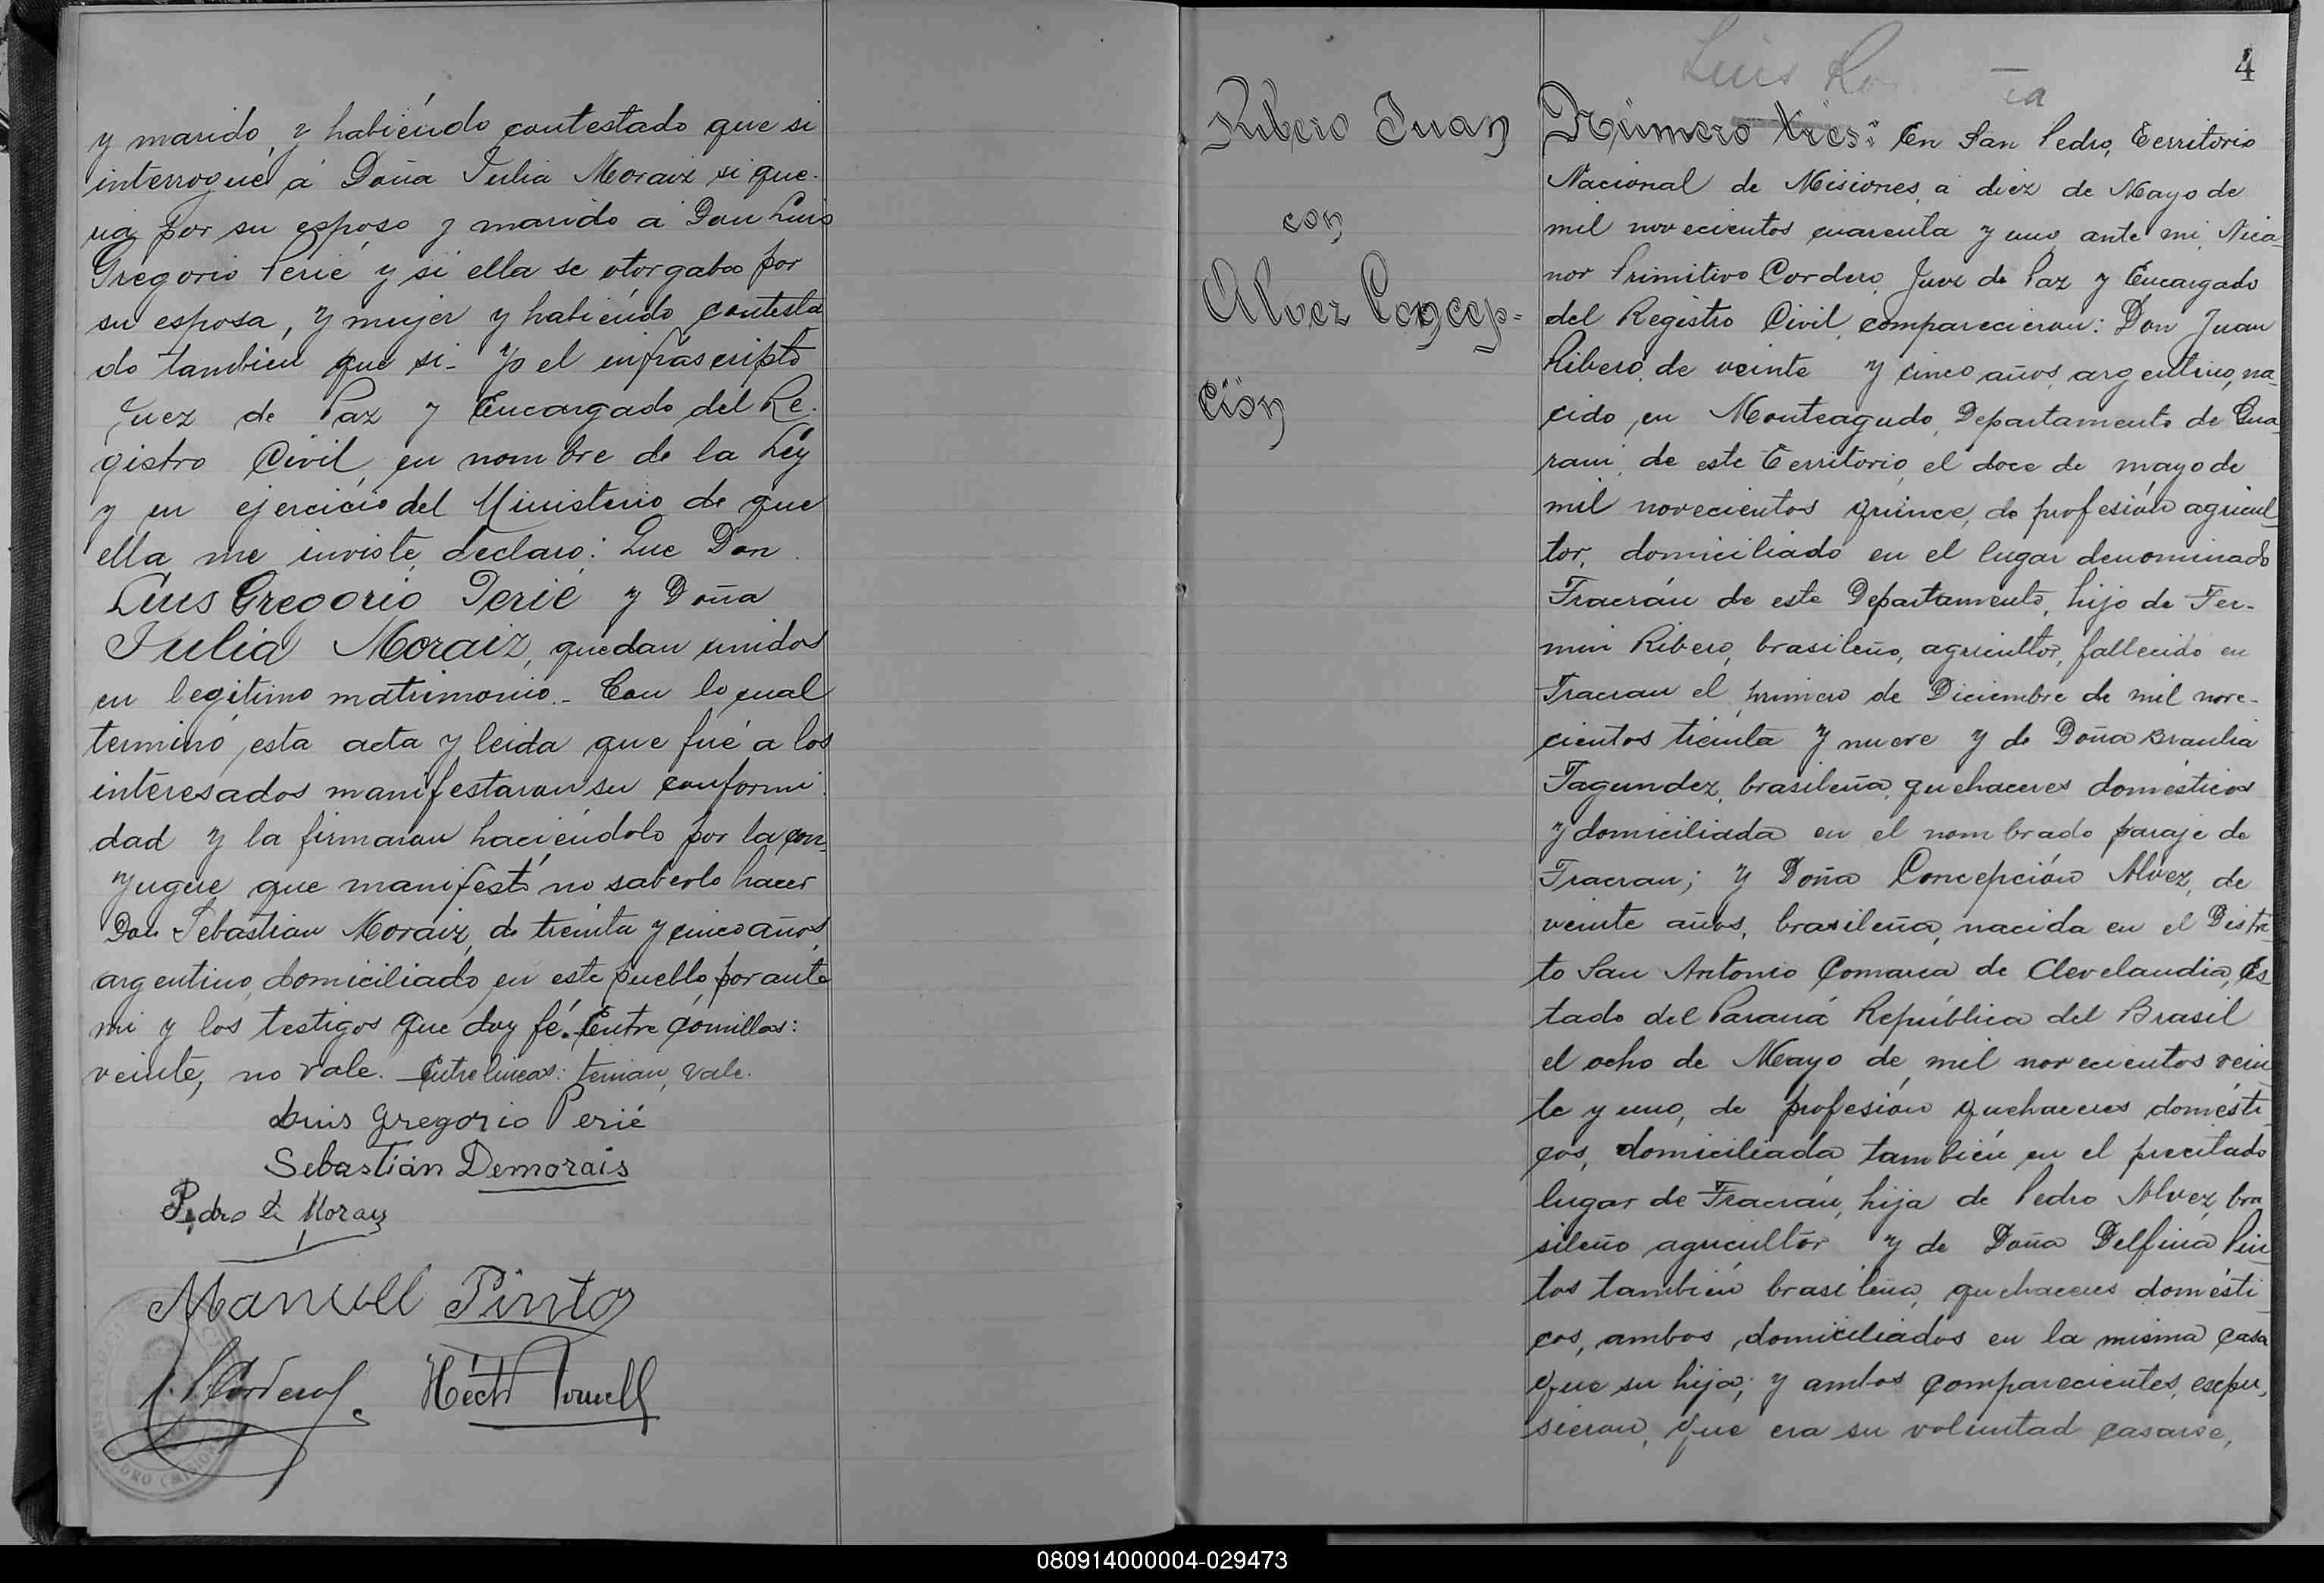 y marido, y habiéndo contestado que si
interrogué á Doña Julia Moraiz si que-
ria por su esposo y marido a Don Luis
Gregorio Perié y si ella se otorgaba por
su esposa, y mujer y habiéndo contesta
do tambien que si- Yo el infrascripto
Juez de Paz y Encargado del Re-
gistro Civil, en nombre de la Ley
y en ejercicio del Ministerio de que
ella me inviste, declaro: Que Don
Luis Gregorio Perié y Doña
Julia Moraiz, quedan unidos
en legitimo matrimonio.- Con lo cual
terminó esta acta y leida que fué a los
interesados manifestaron su conformi-
dad y la firmaron haciéndolo por la con-
yugue que manifestó no saberlo hacer
Don Sebastian Moraiz, de treinta y cinco años,
argentino, domiciliado en este pueblo por ante
mi y los testigos que doy fé. Entre comillas:
veinte, no vale. Entrelineas: tenian, vale.
Luis Gregorio Perié
Sebastián Demorais
Pedro de Moraiz
Manuell Pinto
Ribero Juan
con
Alvez Concep-
ción
Luis
4
Número tres: En San Pedro, Territorio
Nacional de Misiones, a diez de Mayo de
mil novecientos cuarenta y uno, ante mi, Nica-
nor Primitivo Cordero, Juez de Paz y Encargado
del Registro Civil, comparecieron: Don Juan
Ribero, de veinte y cinco años, argentino, na-
cido en Monteagudo, Departamento de Gua-
rani, de este Territorio, el doce de mayo de
mil novecientos quince, de profesión agricul-
tor, domiciliado en el lugar denominado
Fracrán de este Departamento, hijo de Fer-
min Ribero, brasileño, agricultor, fallecido en
Fracran el primero de Diciembre de mil nove-
cientos treinta y nueve y de Doña Braulia
Fagundez, brasileña, quehaceres domésticos
y domiciliada en el nombrado paraje de
Fracran; y Doña Concepción Alvez, de
veinte años, brasileña, nacida en el Distri-
to San Antonio Comarca de Clevelandia, Es
tado del Paraná República del Brasil
el ocho de Mayo de mil novecientos vein
te y uno, de profesión quehaceres domésti-
cos, domiciliada también en el precitado
lugar de Fracrán, hija de Pedro Alvez, bra
sileño agricultor y de Doña Delfina Pin
tos también brasileña, quehaceres domésti-
cos, ambos domiciliados en la misma casa
que su hija; y ambos comparecientes, expu-
sieron, que era su voluntad casarse,
080914000004-029473